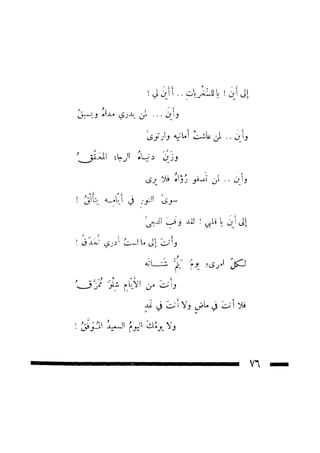 إلى أين ! يا للسُّخْرِياتِ .. أأينَ لي ؟
وأينَ ... لمن يدري مداهُ ويسبقُ
وأينَ .. لمن عاشتْ أمانيه وارتوىْ
وزَيَّنَ دنياهُ الرجاءُ المحقَّقُ
وأين .. لمن تصفو رُؤاهُ فلا يرى
سوىْ النورِ في أيّامِه يتألَّقُ !
إلى أين يا قلبي ! لقد وقفَ الدجىْ
وأنتَ إلى ما لستُ أدري تُحَدِّقُ !
لكلِّ امرىءٍ يومٌ يَلُمُّ شتاتَه
وأنتَ من الأيّامِ شِلْوٌ مُمَزَّقُ
فلا أنتَ في ماضٍ ولا أنتَ في غَدٍ
ولا يومُكَ اليومُ السعيدُ الموَفَّقُ !
٧٦